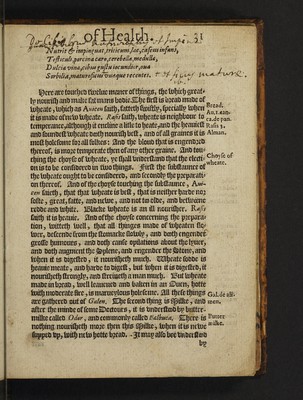 of Health. 31
Nutrit & impinguat, triticum, lac, caseus infans,
Testiculi porcina caro, cerebella, medulla,
Dulcia vina, cibus gustu iucundior, oua
Sorbilia, maturæ ficus vuæque recentes. mature.
Here are touched twelue maner of things, the which great-
ly nourish and make fat mans bodie. The first is bread made of
wheate, which as Auicen saith, fatteth swiftly, specially when
it is made of new wheate. Rasis saith, wheate is neighbour to
temperance, although it encline a litle to heate, and the heauiest
and soundest wheate doth nourish best, and of all graines it is
most holesome for all folkes: And the bloud that is engendred
thereof, is more temperate then of any other graine. And tou-
ching the choyse of wheate, ye shall vnderstand that the electi-
on is to be considered in two things. First the substaunce of
the wheate ought to be considered, and secondly the preparati-
on thereof. And of the choyse touching the substaunce, Aui-
cen saieth, that that wheate is best, that is neither harde nor
softe, great, fatte, and newe, and not to olde, and betweene
redde and white. Blacke wheate is an ill nourisher. Rasis
saith it is heauie. And of the choyse concerning the prepara-
tion, witteth well, that all thinges made of wheaten flo-
wer, descende from the stomacke slowly, and doth engender
grosse humours, and doth cause opilations about the lyuer,
and doth augment the splene, and engender the stone, and
when it is digested, it nourisheth much. Wheate sodde is
heauie meate, and harde to digest, but when it is digested, it
nourisheth strongly, and strength a man much. But wheate
made in bread, well leauened and baken in an Ouen, hotte
with moderate fier, is marueylous holesome. All these things
are gathered out of Galen. The second thing is Milke, and
after the minde of some Doctours, it is vnderstood by butter-
milke called Odor, and commonly called Balbuca. There is
nothing nourisheth more then this Milke, when it is newe
supped vp, with new hotte bread. It may also bee vnderstood
by
Bread.
Rasis 3.
Alman.
Choyse of
wheate.
Gal. de ali-
men.
Butter
milke.